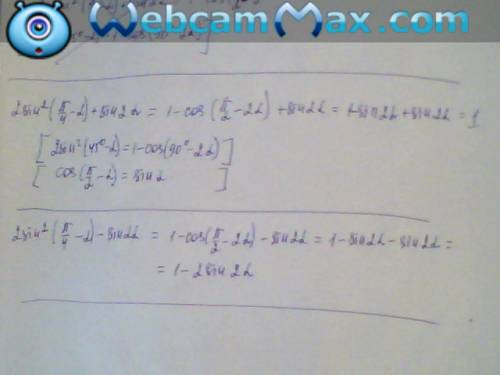 WebcamMax.com
2sin²(π/4-α)+sin2α = 1-cos(π/2-2α)+sin2α = 1-sin2α+sin2α = 1
[ 2sin²(45°-α)=1-cos(90°-2α) ]
[ cos(π/2-α)=sinα ]
2sin²(π/4-α)-sin2α = 1-cos(π/2-2α)-sin2α = 1-sin2α-sin2α =
= 1-2sin2α